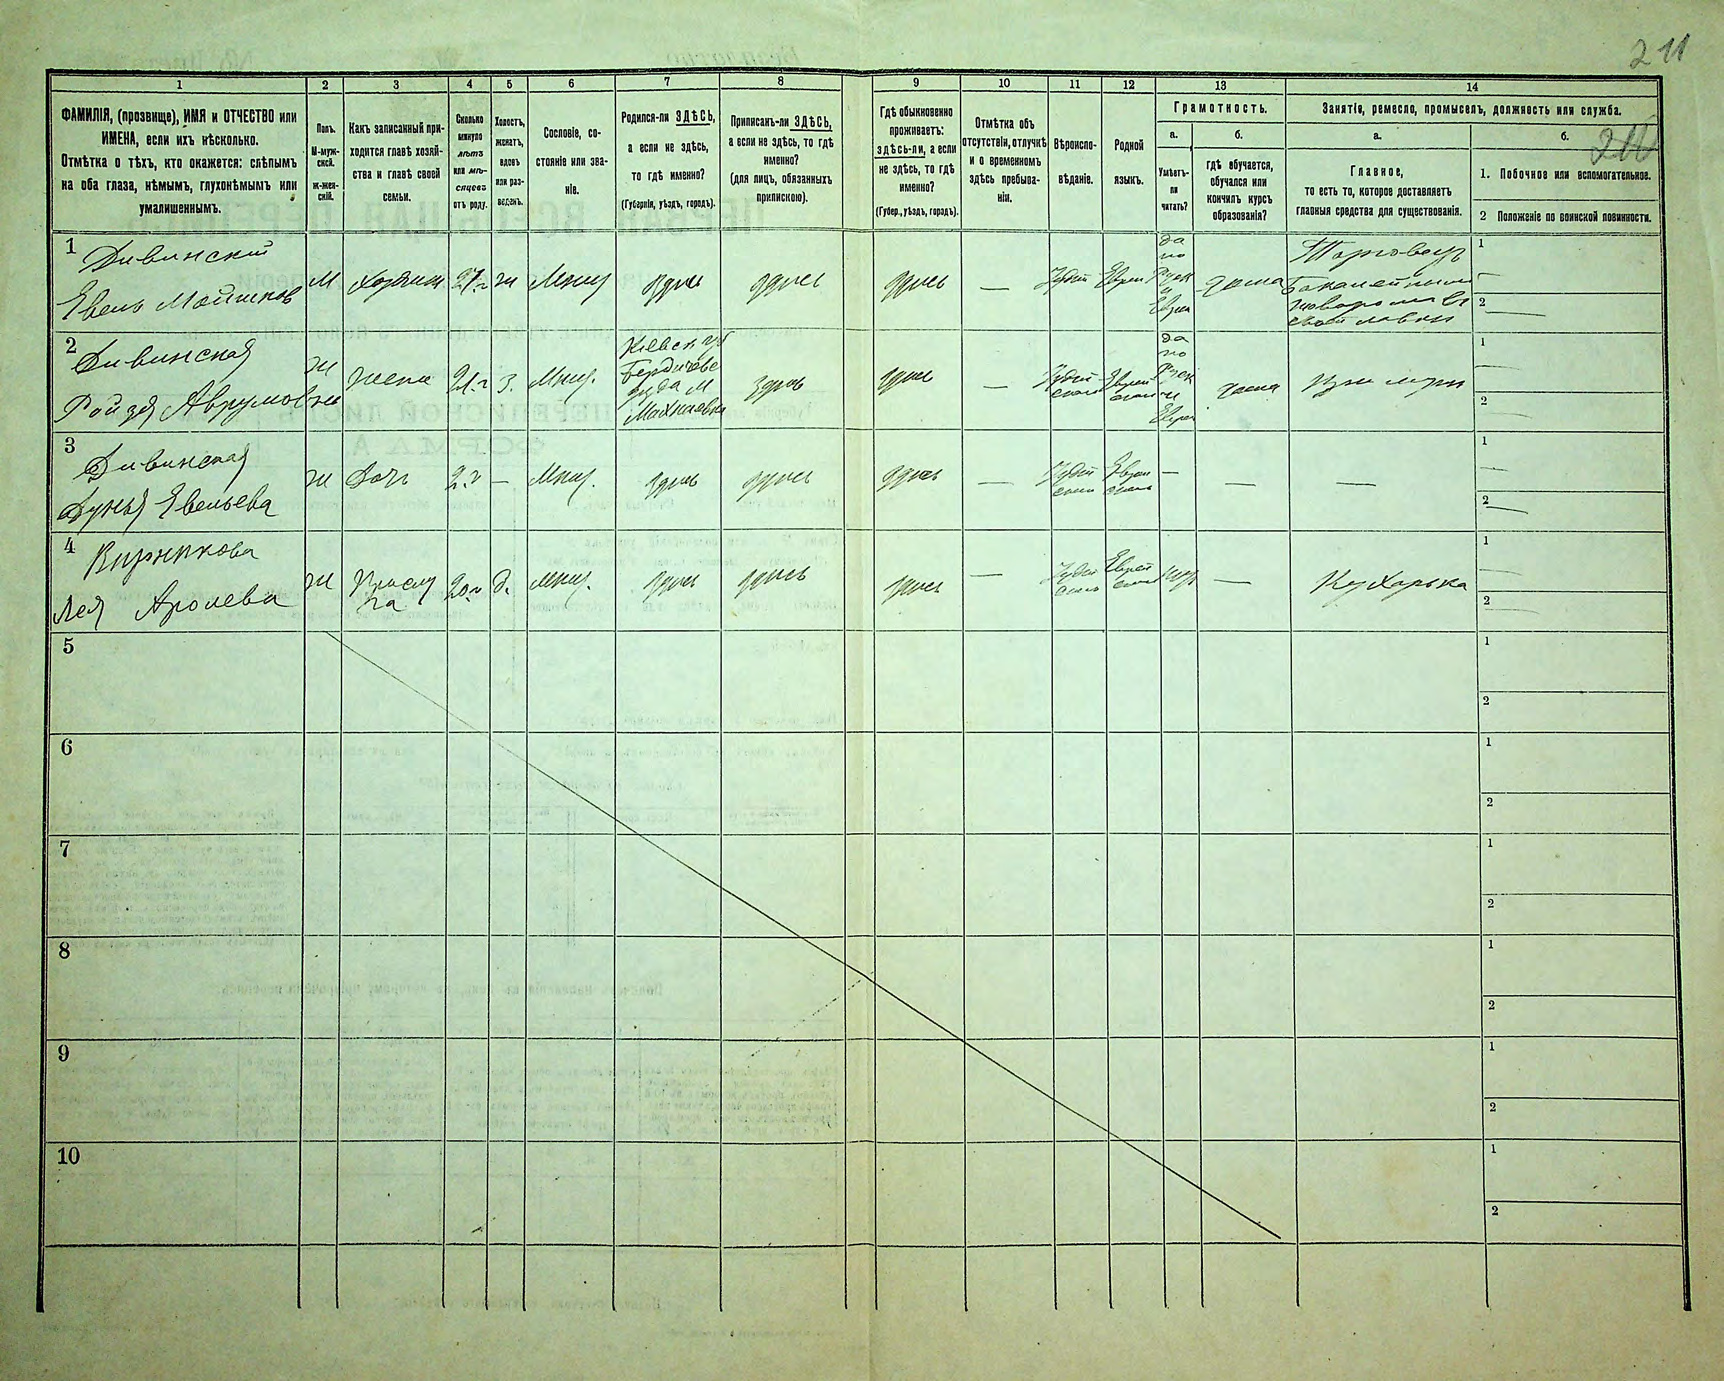 211
210
1 2 3 4 5 6 7 8 9 10 11 12 13 14
ФАМИЛІЯ, (прозвище), ИМЯ и ОТЧЕСТВО или
ИМЕНА, если ихъ нѣсколько.
Отмѣтка о тѣхъ, кто окажется: слѣпымъ
на оба глаза, нѣмымъ, глухонѣмымъ или
умалишеннымъ.
Полъ.
М-муж-
ской.
Ж-жен-
скій.
Какъ записанный при-
ходится главѣ хозяй-
ства и главѣ своей
семьи.
Сколько
минуло
лѣтъ
или мѣ-
сяцевъ
отъ роду.
Холостъ,
женатъ,
вдовъ
или раз-
веденъ.
Сословіе, со-
стояніе или зва-
ніе.
Родился-ли ЗДѢСЬ,
а если не здѣсь,
то гдѣ именно?
(Губернія, уѣздъ, городъ).
Приписанъ-ли ЗДѢСЬ,
а если не здѣсь, то гдѣ
именно?
(для лицъ, обязанныхъ
припискою).
Гдѣ обыкновенно
проживаетъ:
здѣсь-ли, а если
не здѣсь, то гдѣ
именно?
(Губер., уѣздъ, городъ).
Отмѣтка объ
отсутствіи, отлучкѣ
и о временномъ
здѣсь пребыва-
ніи.
Вѣроиспо-
вѣданіе.
Родной
языкъ.
Грамотность.
а.
Умѣетъ-
ли
читать?
б.
Гдѣ обучается,
обучался или
кончилъ курсъ
образованія?
Занятія, ремесло, промыселъ, должность или служба.
а.
Главное,
то есть то, которое доставляетъ
главныя средства для существованія.
б.
1. Побочное или вспомогательное.
2 Положеніе по воинской повинности.
1
Дивинский
Евель Мойшков
М
Хозяин
27 г
ж
Мещ
здесь
здесь
здесь
—
Іудей
Еврей
да
по
Руск
и
Евреи
дома
Торговец
Бакалейным
товаром в
своей лавки
1
—
2
—
2
Дивинская
Ройзя Аврумовна
ж
жена
21 г
з.
Мещ.
Киевск губ
Бердичевс
уезда М
Махновка
здесь
здесь
—
Іудей
ской
Еврей
ской
да
по
Руск
и
Евреи
дома
При муже
1
—
2
—
3
Дивинская
Дуня Евельева
ж
Дочь
2 г
—
Мещ.
здесь
здесь
здесь
—
Іудей
ской
Еврей
ской
—
—
—
1
—
2
—
4
Вирникова
Лея Аролева
ж
Прислу
га
20 г
д.
мещ.
здесь
здесь
здесь
—
Іудей
ской
Еврей
ской
—
Кухарька
1
2
—
5
1
2
6
1
2
7
1
2
8
1
2
9
1
2
10
1
2